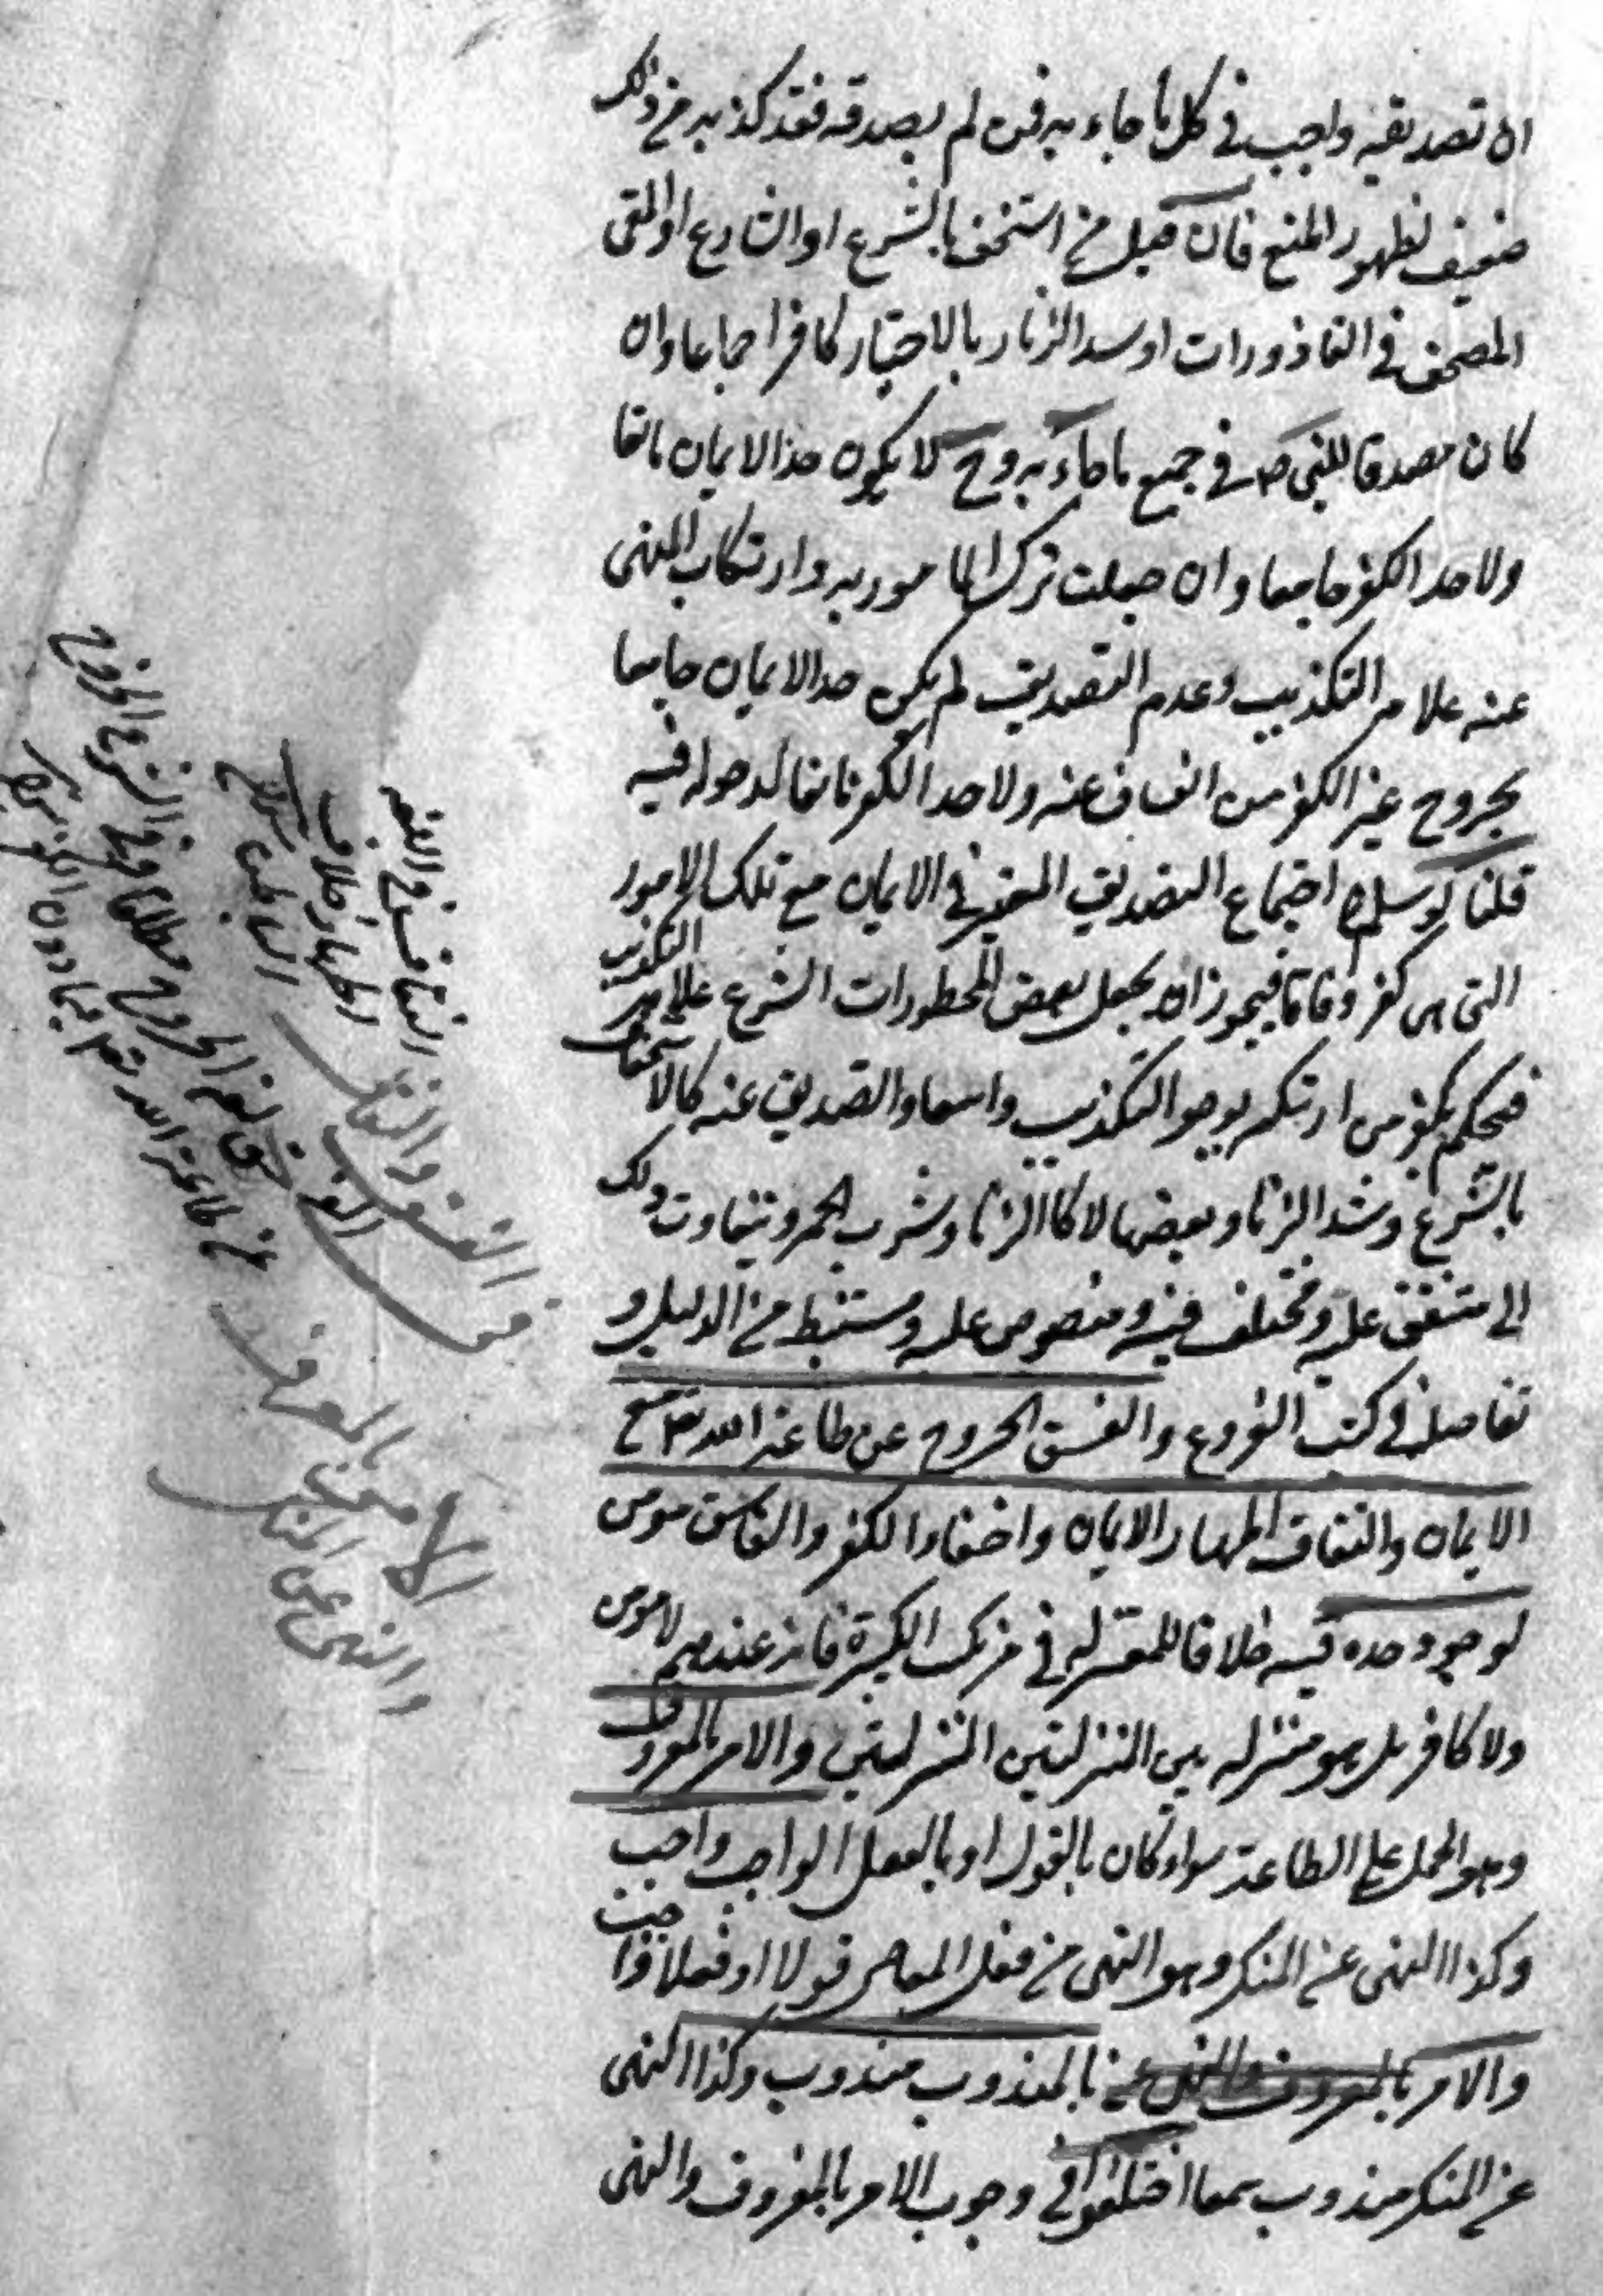 ان تصديقه واجب في كل ما جاء به فمن لم يصدقه فقد كذبه من ذلك
ضعيف لظهور المنع فان قيل من استخف بالشرع او الشارع او القى
المصحف في القاذورات او شد الزنار بالاختيار كافر اجماعا وان
كان مصدقا للنبي ص في جميع ما جاء به وح لا يكون حد الايمان مانعا
ولا حد الكفر جامعا وان جعلت ترك المامور به وارتكاب المنهى
عنه علامة التكذيب وعدم التصديق لم يكن حد الايمان جامعا
بخروج غير الكفر من الفساق عنه ولا حد الكفر مانعا لدخوله فيه
قلنا لو سلم اجتماع التصديق المعتبر في الايمان مع تلك الامور
التى هى كفر وفاقا فيجوز ان يجعل بعض المحظورات الشرع علامة التكذيب
فيحكم بكفر من ارتكبه بوجود التكذيب وانتفاء التصديق عنه كالاستخفاف
بالشرع وشد الزنار وبعضها لا كالزنا وشرب الخمر ويتفاوت ذلك
الى متفق عليه ومختلف فيه ومنصوص عليه ومستنبط من الدليل و
تفاصيله في كتب الفروع والفسق الخروج عن طاعة الله تع مع
الايمان والنفاق اظهار الايمان واخفاء الكفر والفاسق مومن
لوجود حده فيه خلافا للمعتزله في مرتكب الكبيرة فانه عندهم لا مومن
ولا كافر بل هو منزله بين المنزلتين المنزلتين والامر بالمعروف
وهو الحمل على الطاعة سواء كان بالقول او بالفعل الواجب واجب
وكذا النهى عن المنكر وهو النهى من فعل المعاصى قولا او فعلا واجب
والامر بالمعروف والنهى عن بالمندوب مندوب وكذا النهى
عن المنكر مندوب سمعا اختلفوا في وجوب الامر بالمعروف والنهى
النفاق في اللغة
اظهار خلاف
الباطن
الفسق لغة الخروج مطلقا وفي الشرع الخروج
عن طاعة الله تع
الفسق والنفاق
في
الامر بالمعروف
والنهى عن المنكر